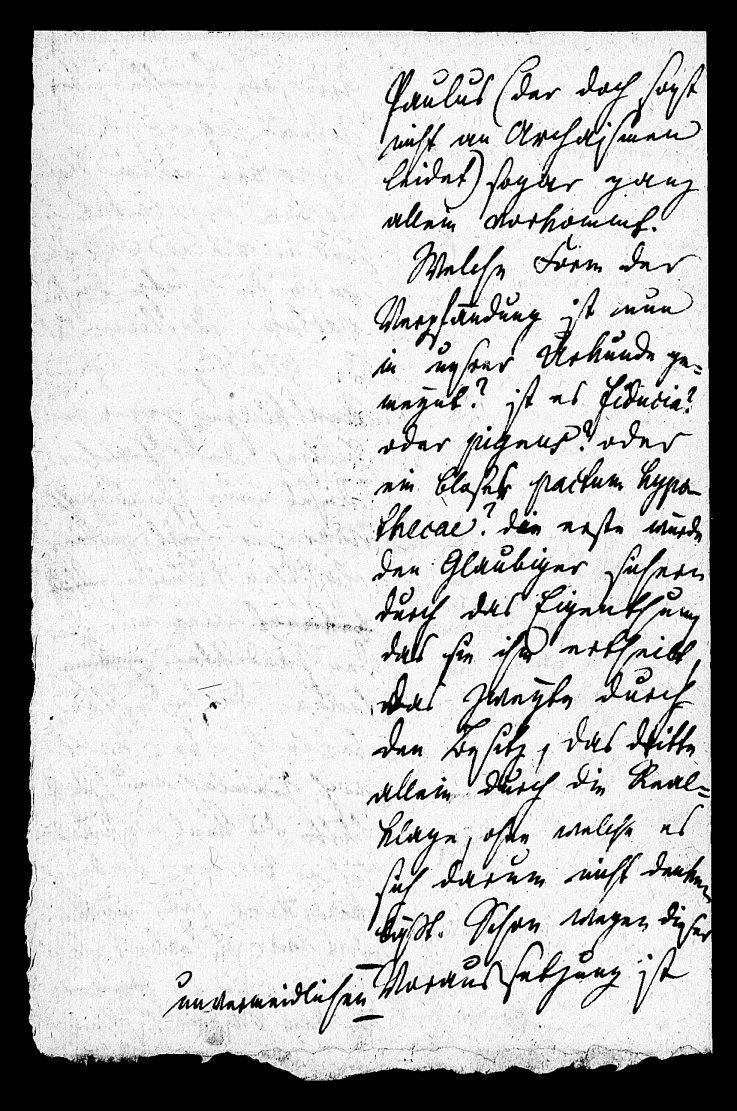 Paulus (der doch sonst
nicht an Archaismen
leidet) sogar ganz
allein vorkommt.
Welche Form der
Verpfändung ist nun
in unsrer Urkunde ge=
meynt? ist es fiducia?
oder pignus? oder
ein bloßes pactum hypo-
thecae? die erste würde
den Glaubiger sichern
durch das Eigenthum,
das sie ihm ertheilt,
das zweyte durch
den Besitz, das dritte
allein durch die Real=
klage, ohne welche es
sich darum nicht denken
läßt. Schon wegen dieser
unvermeidlichen Voraussetzung ist